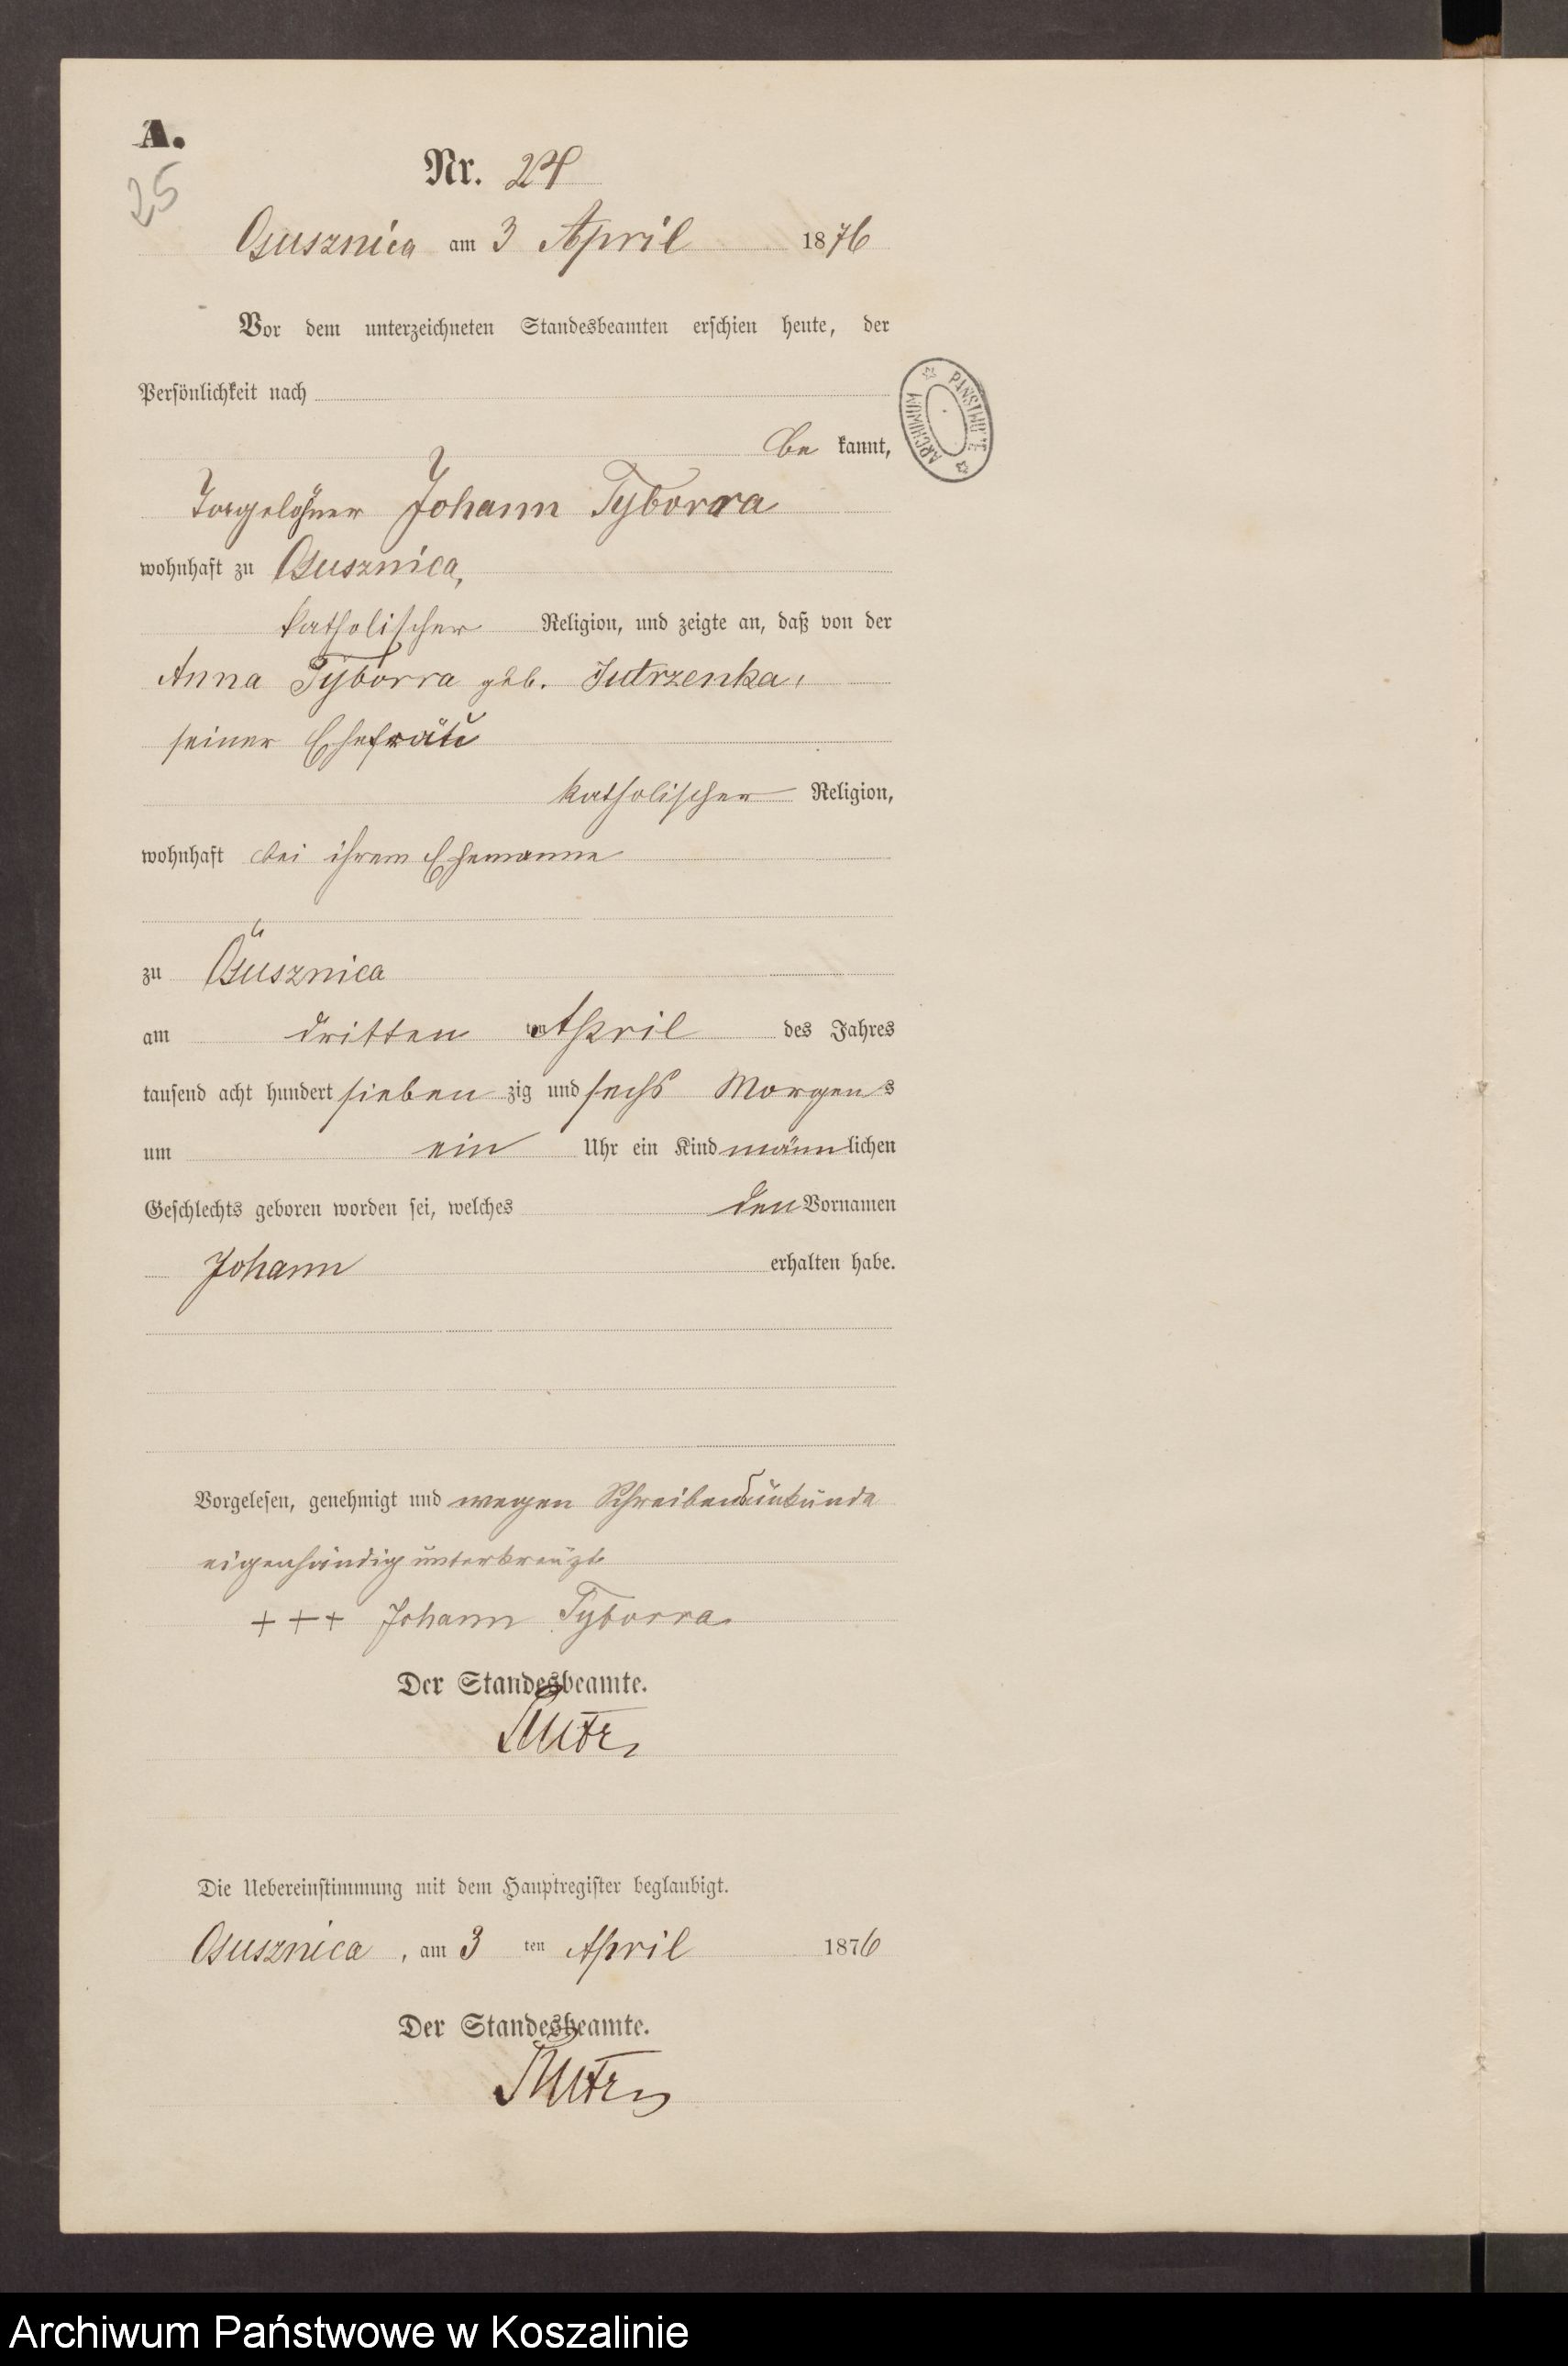 A.
25
Nr. 24
Ossusznica am 3 April 1876
Vor dem unterzeichneten Standesbeamten erschien heute, der
Persönlichkeit nach
be kannt,
PAŃSTWOWE
ARCHIWUM
Tagelöhner Johann Tyborra
wohnhaft zu Ossusznica,
katholischer Religion, und zeigte an, daß von der
Anna Tyborra geb. Jutrzenka,
seiner Ehefrau
katholischer Religion,
wohnhaft bei ihrem Ehemanne
zu Ossusznica
am dritten ten April des Jahres
tausend acht hundert sieben zig und sechs Morgens
um ein Uhr ein Kind männlichen
Geschlechts geboren worden sei, welches den Vornamen
Johann erhalten habe.
Vorgelesen, genehmigt und wegen Schreibensunkunde
eigenhändig unterkreuzt
+++ Johann Tyborra.
Der Standesbeamte.
Die Uebereinstimmung mit dem Hauptregister beglaubigt.
Ossusznica, am 3 ten April 1876
Der Standesbeamte.
Archiwum Państwowe w Koszalinie